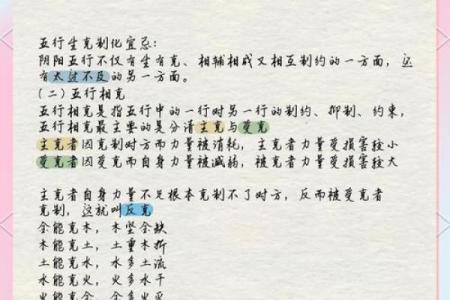 五行生克制化宜忌:
阴阳五行不仅有生有克、相辅相成又相互制约的一方面，还
有太过不及的另一方面。
(二)五行相克
五行相克是指五行中的一行对另一行的制约、抑制、约束，
五行相克最主要的是分清主克与受克
主克者因克制对方而力量被消耗，主克者力量受损害较小
受克者因受克而自身力量被减弱，被克者力量受损害较大
主克者自身力量不足根本克制不了对方，反而被受克者
克制，这就叫反克
金能克木，木坚金缺
木能克土，土重木折
土能克水，水多土流
水能克火，火多水干
火能克金，金多火灭